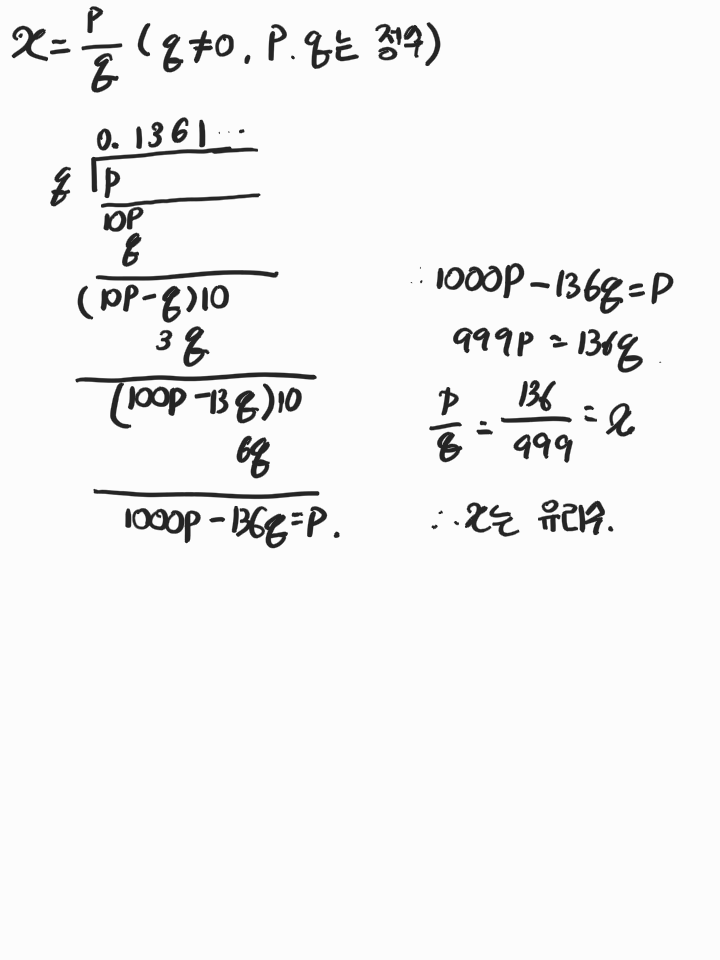 x = p/q (q≠0, p. q는 정수)
0.1361...
q p
10p
q
(10p-q)10
3q
(100p-13q)10
6q
1000p-136q=p.
∴ 1000p-136q=p
999p=136q
p/q = 136/999 = x
∴ x는 유리수.